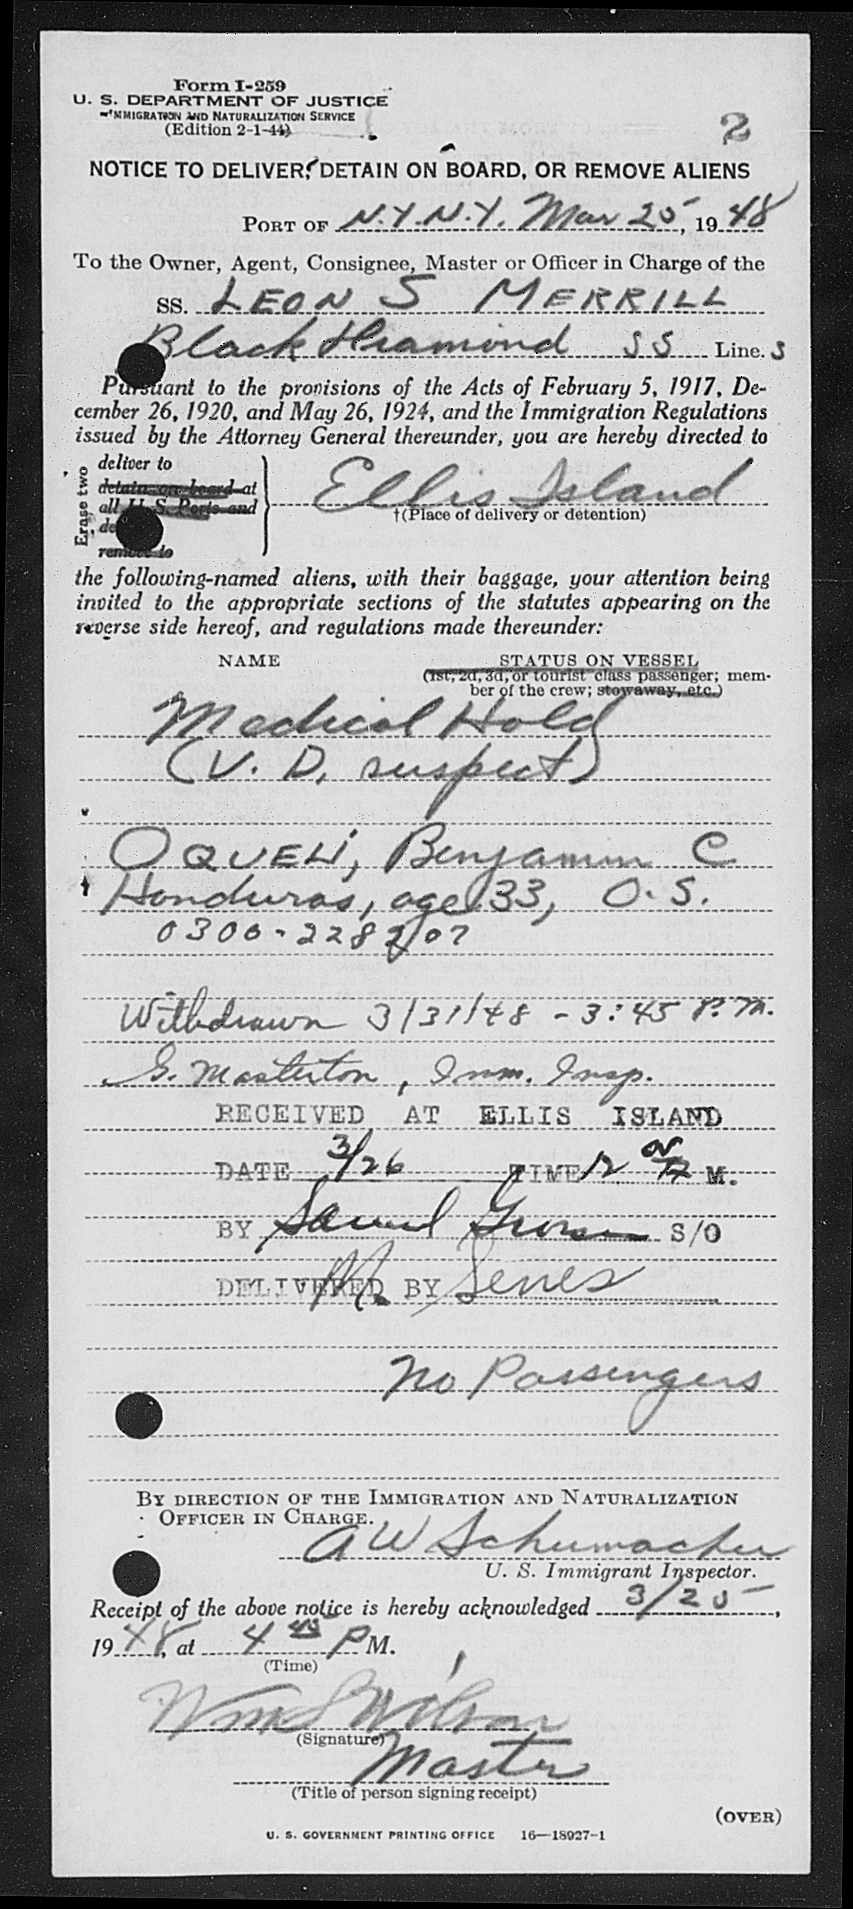 Form I-259
U. S. DEPARTMENT OF JUSTICE
IMMIGRATION AND NATURALIZATION SERVICE
(Edition 2-1-44)
2
NOTICE TO DELIVER, DETAIN ON BOARD, OR REMOVE ALIENS
PORT OF N.Y.N.Y. Mar 25, 1948
To the Owner, Agent, Consignee, Master or Officer in Charge of the
SS. LEON S MERRILL
Black Diamond SS Line.
Pursuant to the provisions of the Acts of February 5, 1917, De-
cember 26, 1920, and May 26, 1924, and the Immigration Regulations
issued by the Attorney General thereunder, you are hereby directed to
Erase two
deliver to
detain on board at
all U. S. Ports and
remove to
Ellis Island
†(Place of delivery or detention)
the following-named aliens, with their baggage, your attention being
invited to the appropriate sections of the statutes appearing on the
reverse side hereof, and regulations made thereunder:
NAME STATUS ON VESSEL
(1st, 2d, 3d, or tourist class passenger; mem-
ber of the crew; stowaway, etc.)
Medical Hold
(V. D. suspect)
OQUELI, Benjamin C
Honduras, age 33, O.S.
0300-228207
Withdrawn 3/31/48 - 3:45 P.M.
G. Masterton, Imm. Insp.
RECEIVED AT ELLIS ISLAND
DATE 3/26 TIME 12 M.
BY Samuel S/O
DELIVERED BY
No Passengers
BY DIRECTION OF THE IMMIGRATION AND NATURALIZATION
OFFICER IN CHARGE.
A W Schumacher
U. S. Immigrant Inspector.
Receipt of the above notice is hereby acknowledged 3/25,
1948, at 4 45 P M.
(Time)
Wm S Wilson
(Signature)
Master
(Title of person signing receipt)
(OVER)
U. S. GOVERNMENT PRINTING OFFICE 16—18927-1